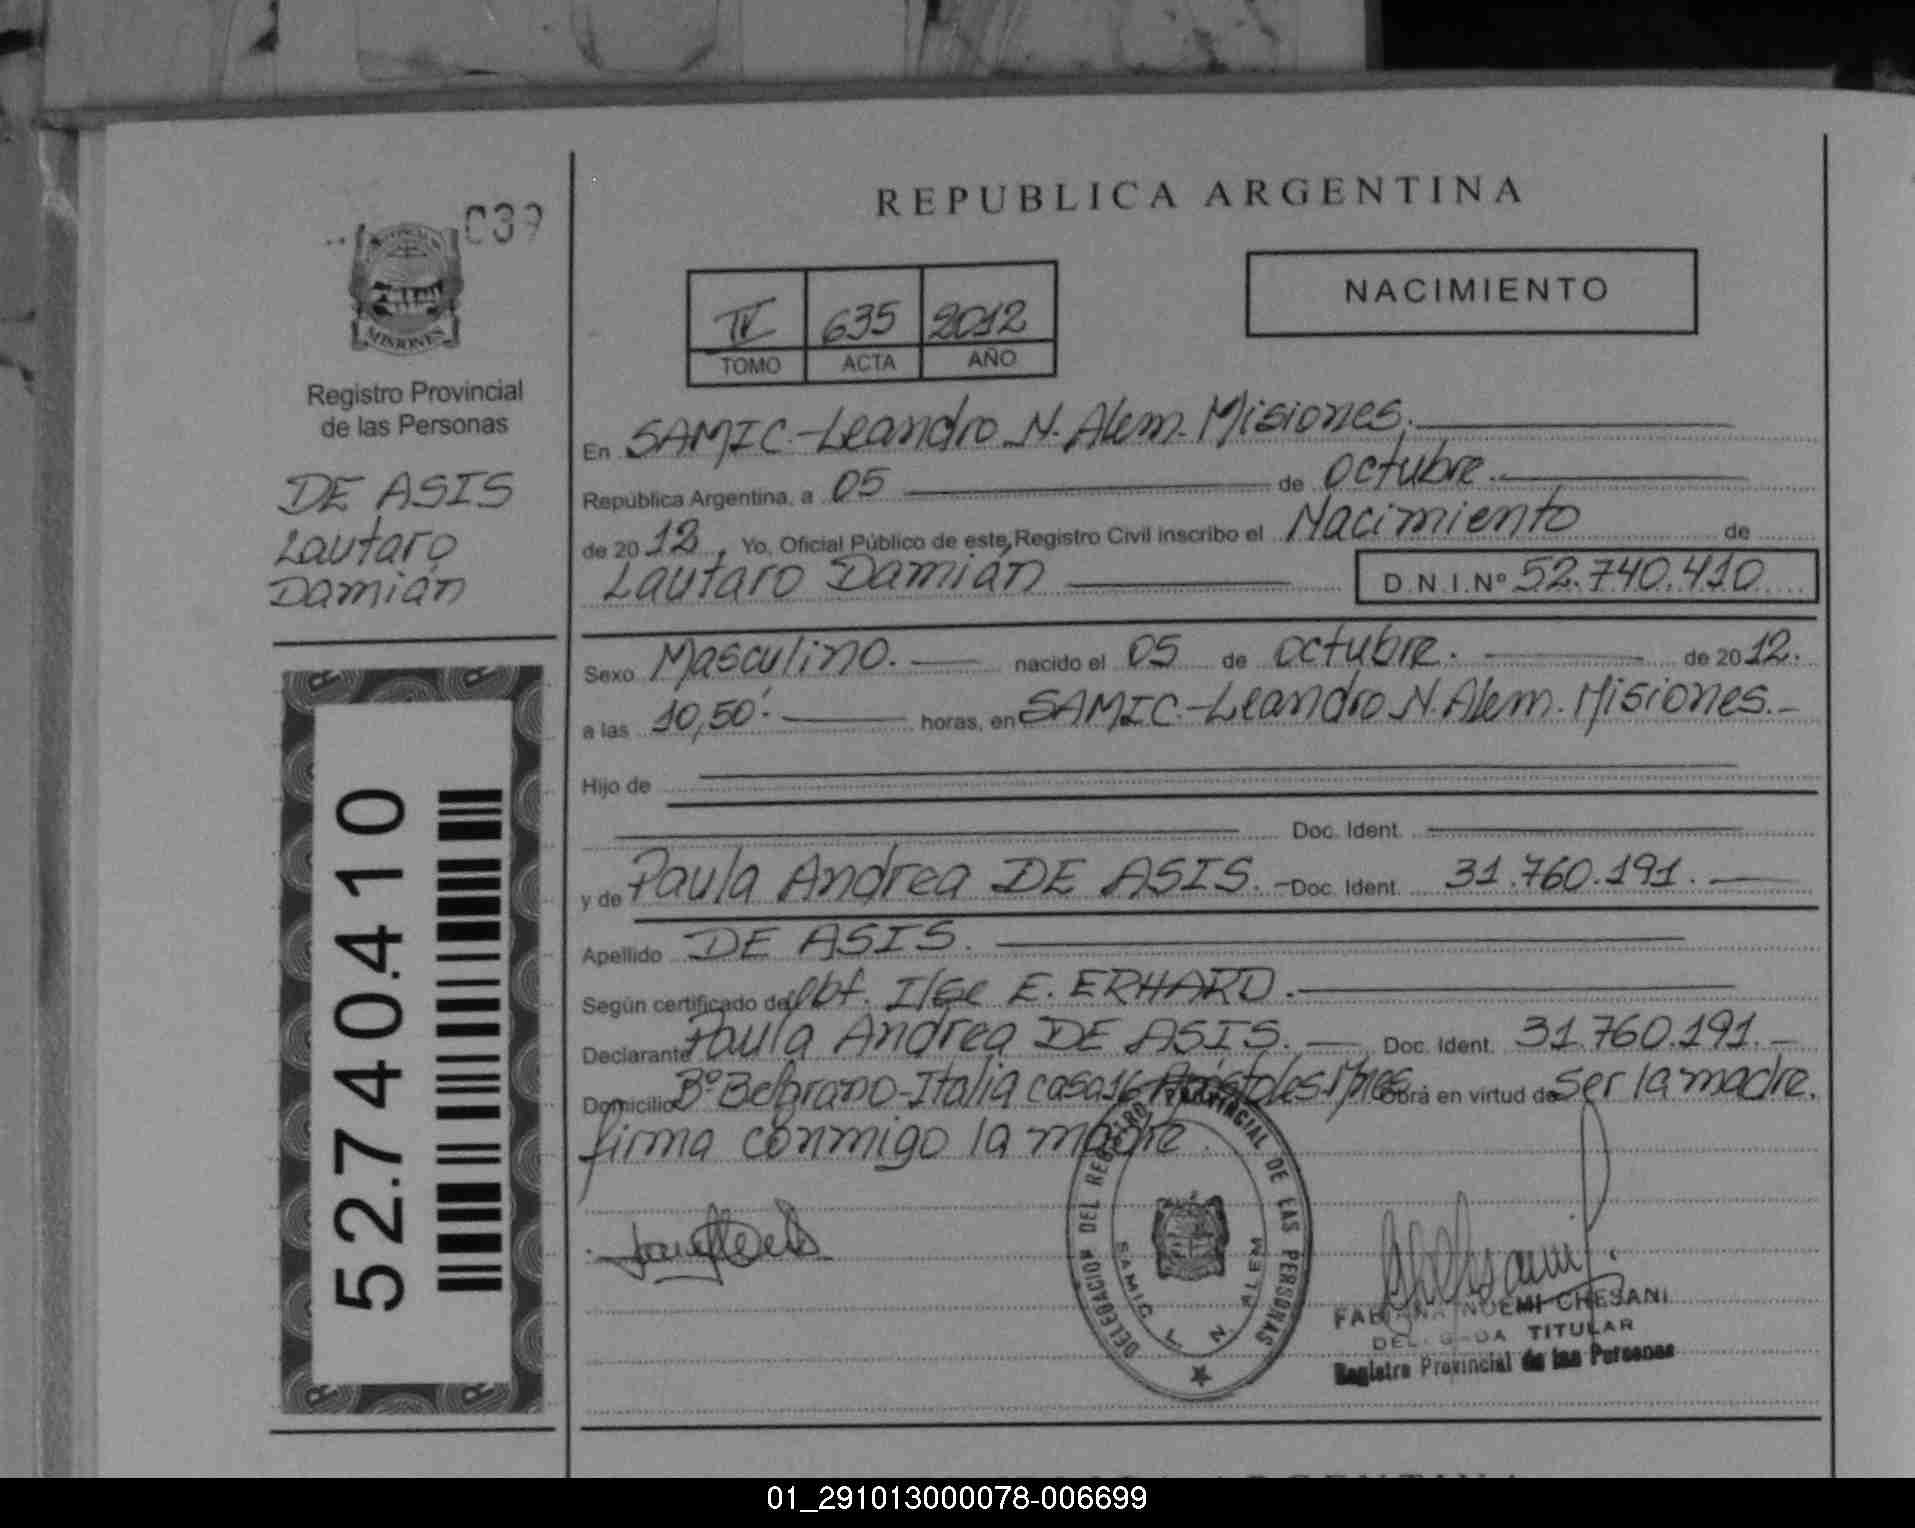 REPUBLICA ARGENTINA
039
MISIONES
Registro Provincial
de las Personas
DE ASIS
Lautaro
Damián
52.740.410
NACIMIENTO
IV 635 2012
TOMO ACTA AÑO
En SAMIC.-Leandro N. Alem. Misiones.
República Argentina, a 05 de octubre.
de 2012, Yo, Oficial Público de este Registro Civil inscribo el Nacimiento de
Lautaro Damián D.N.I.Nº 52.740.410
Sexo Masculino. nacido el 05 de octubre. de 2012.
a las 10,50'. horas, en SAMIC.-Leandro N. Alem. Misiones.-
Hijo de
Doc. Ident.
y de Paula Andrea DE ASIS.- Doc. Ident. 31.760.191.
Apellido DE ASIS.
Según certificado de Obf. Ilse E. ERHARD.
Declarante Paula Andrea DE ASIS. Doc. Ident. 31.760.191.-
Domicilio Bº Belgrano-Italia casa 16 Apóstoles. Mnes Obra en virtud de ser la madre.
firma conmigo la madre.
DELEGACION DEL REGISTRO PROVINCIAL DE LAS PERSONAS
SAMIC L N ALEM
FABIANA NOEMI CHESANI
DELEGADA TITULAR
Registro Provincial de las Personas
01_291013000078-006699